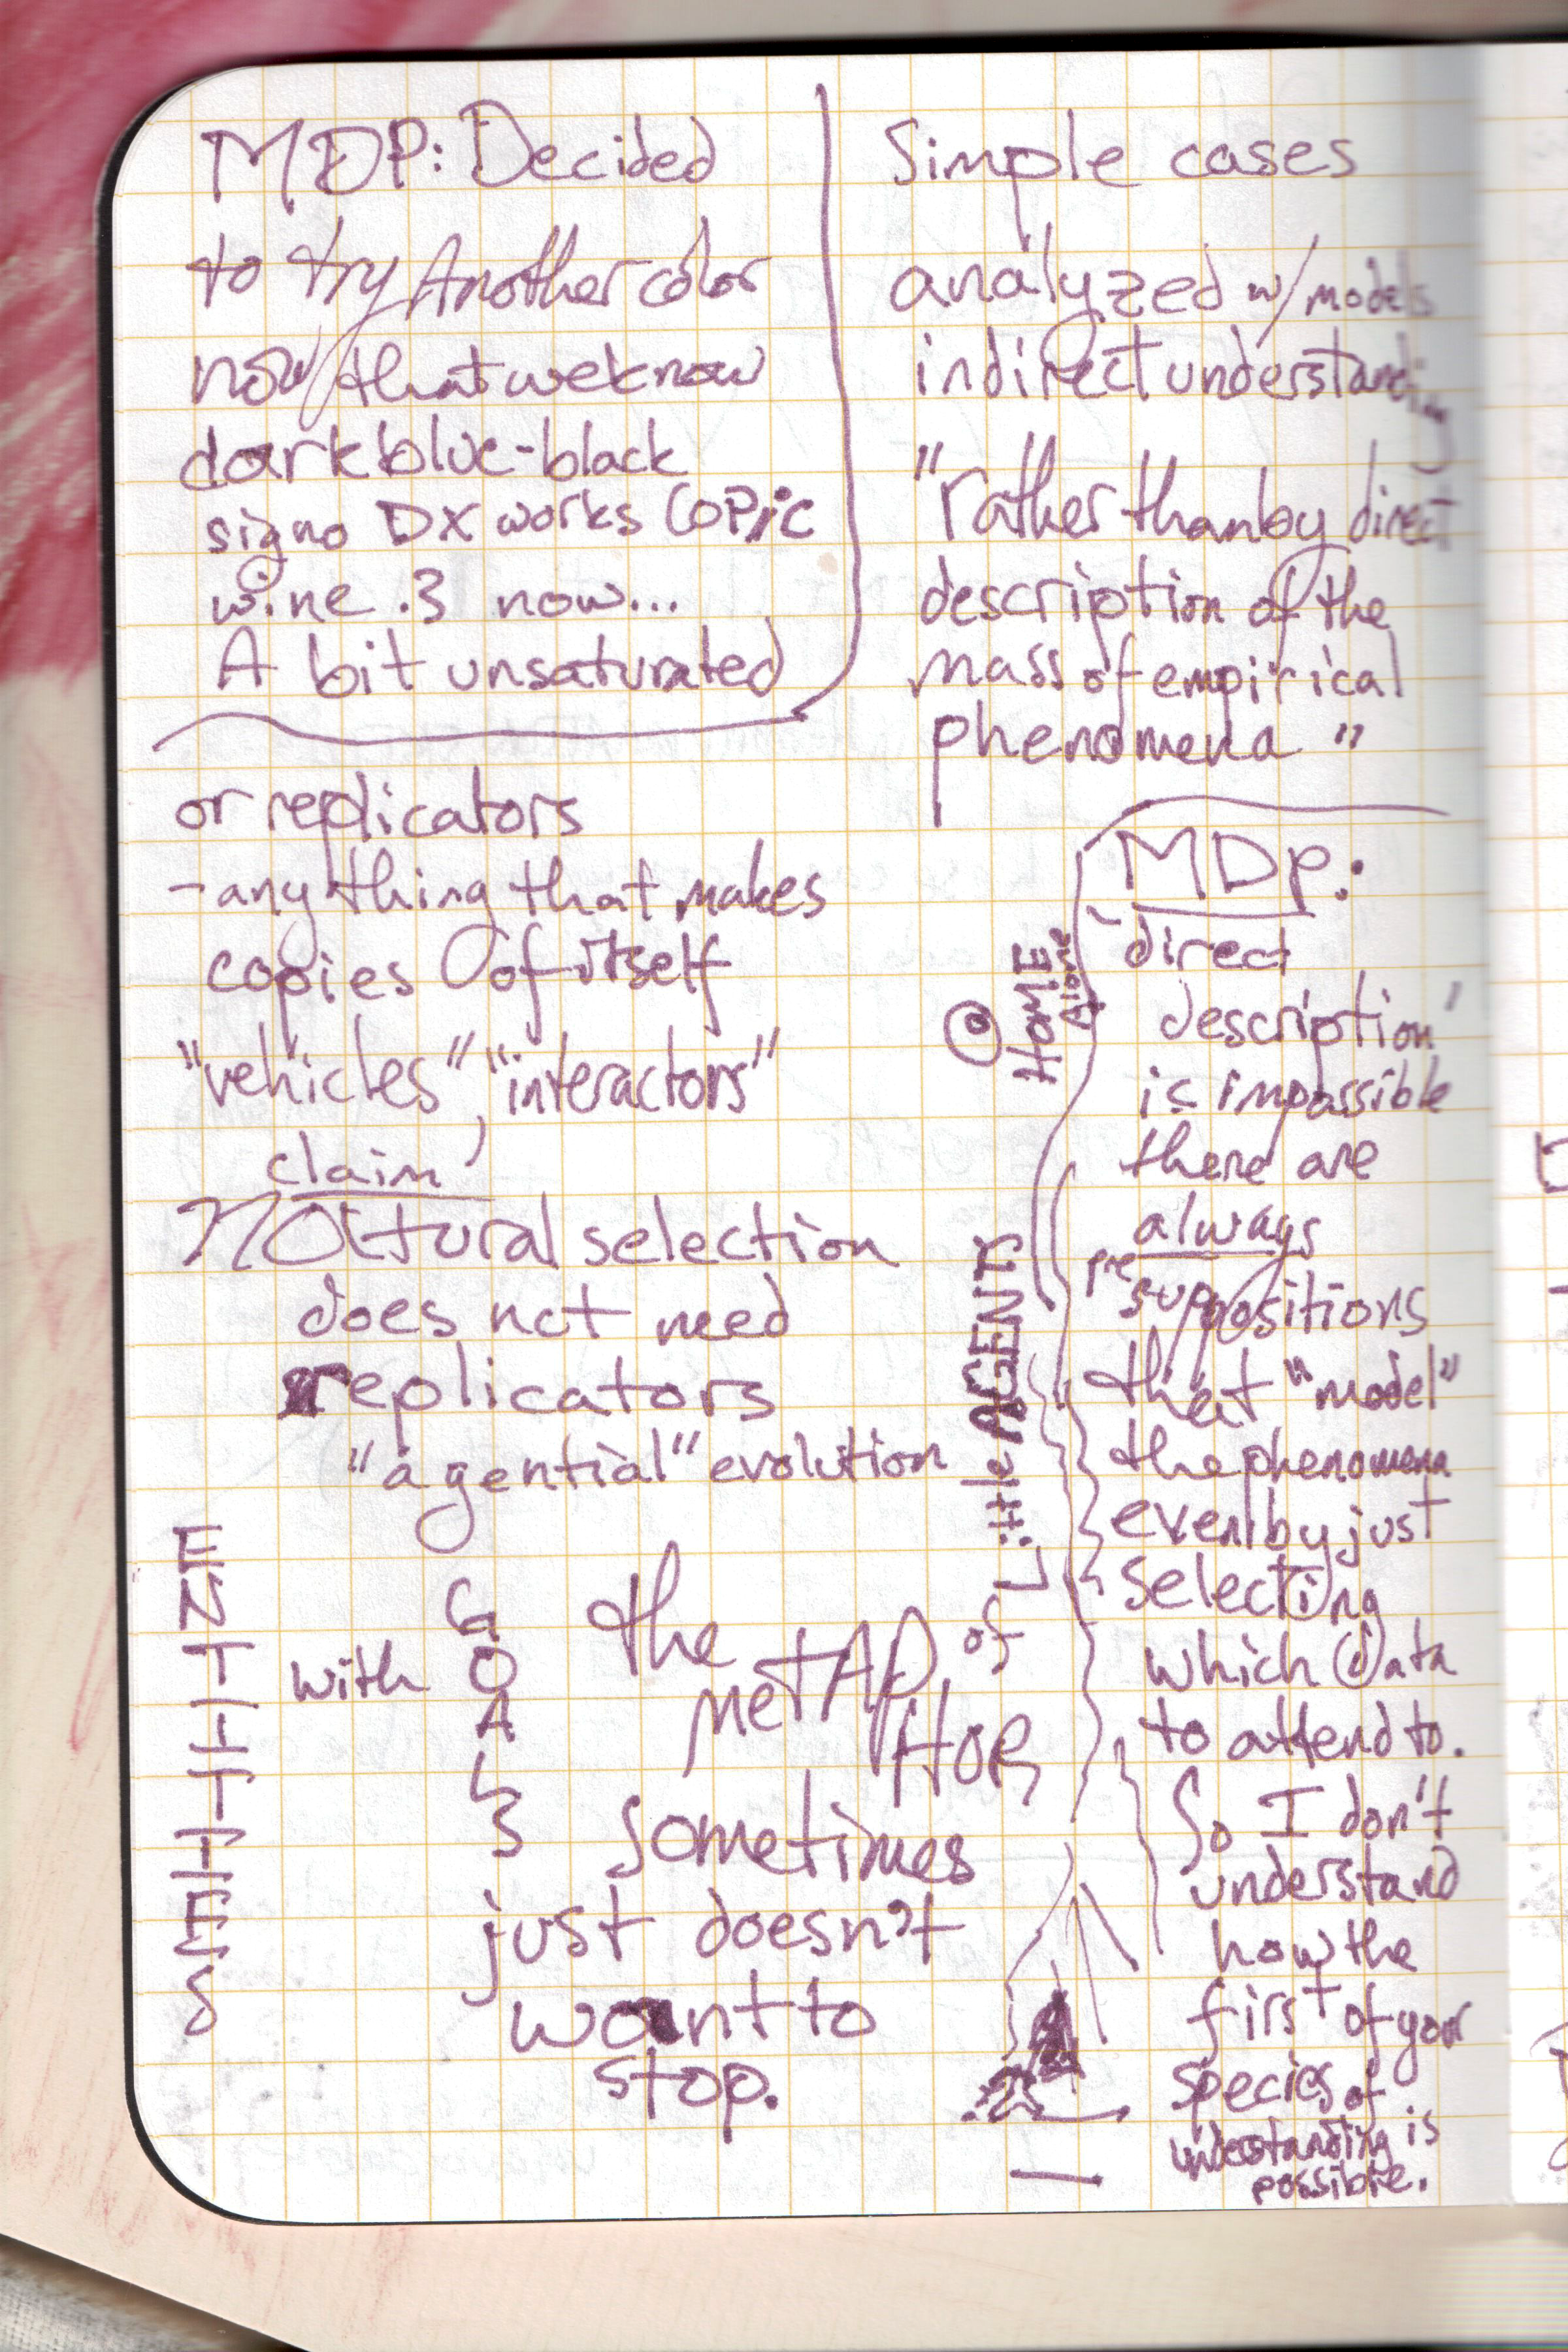 MDP: Decided
to try Another color
now that we know
dark blue-black
signo DX works COPIC
wine .3 now...
A bit unsaturated
or replicators
- anything that makes
copies of itself
"vehicles", "interactors"
claim
Natural selection
does not need
replicators
"agential" evolution
ENTITIES
with
GOALS
the
METAPHOR
of
Little AGENTS
sometimes
just doesn't
want to
stop.
Simple cases
analyzed w/ models
indirect understanding
"rather than by direct
description of the
mass of empirical
phenomena"
@ HOME
Alone
MDP:
'direct
description'
is impossible
there are
always
presuppositions
that "model"
the phenomena
even by just
selecting
which data
to attend to.
So I don't
understand
how the
first of your
species of
understanding is
possible.